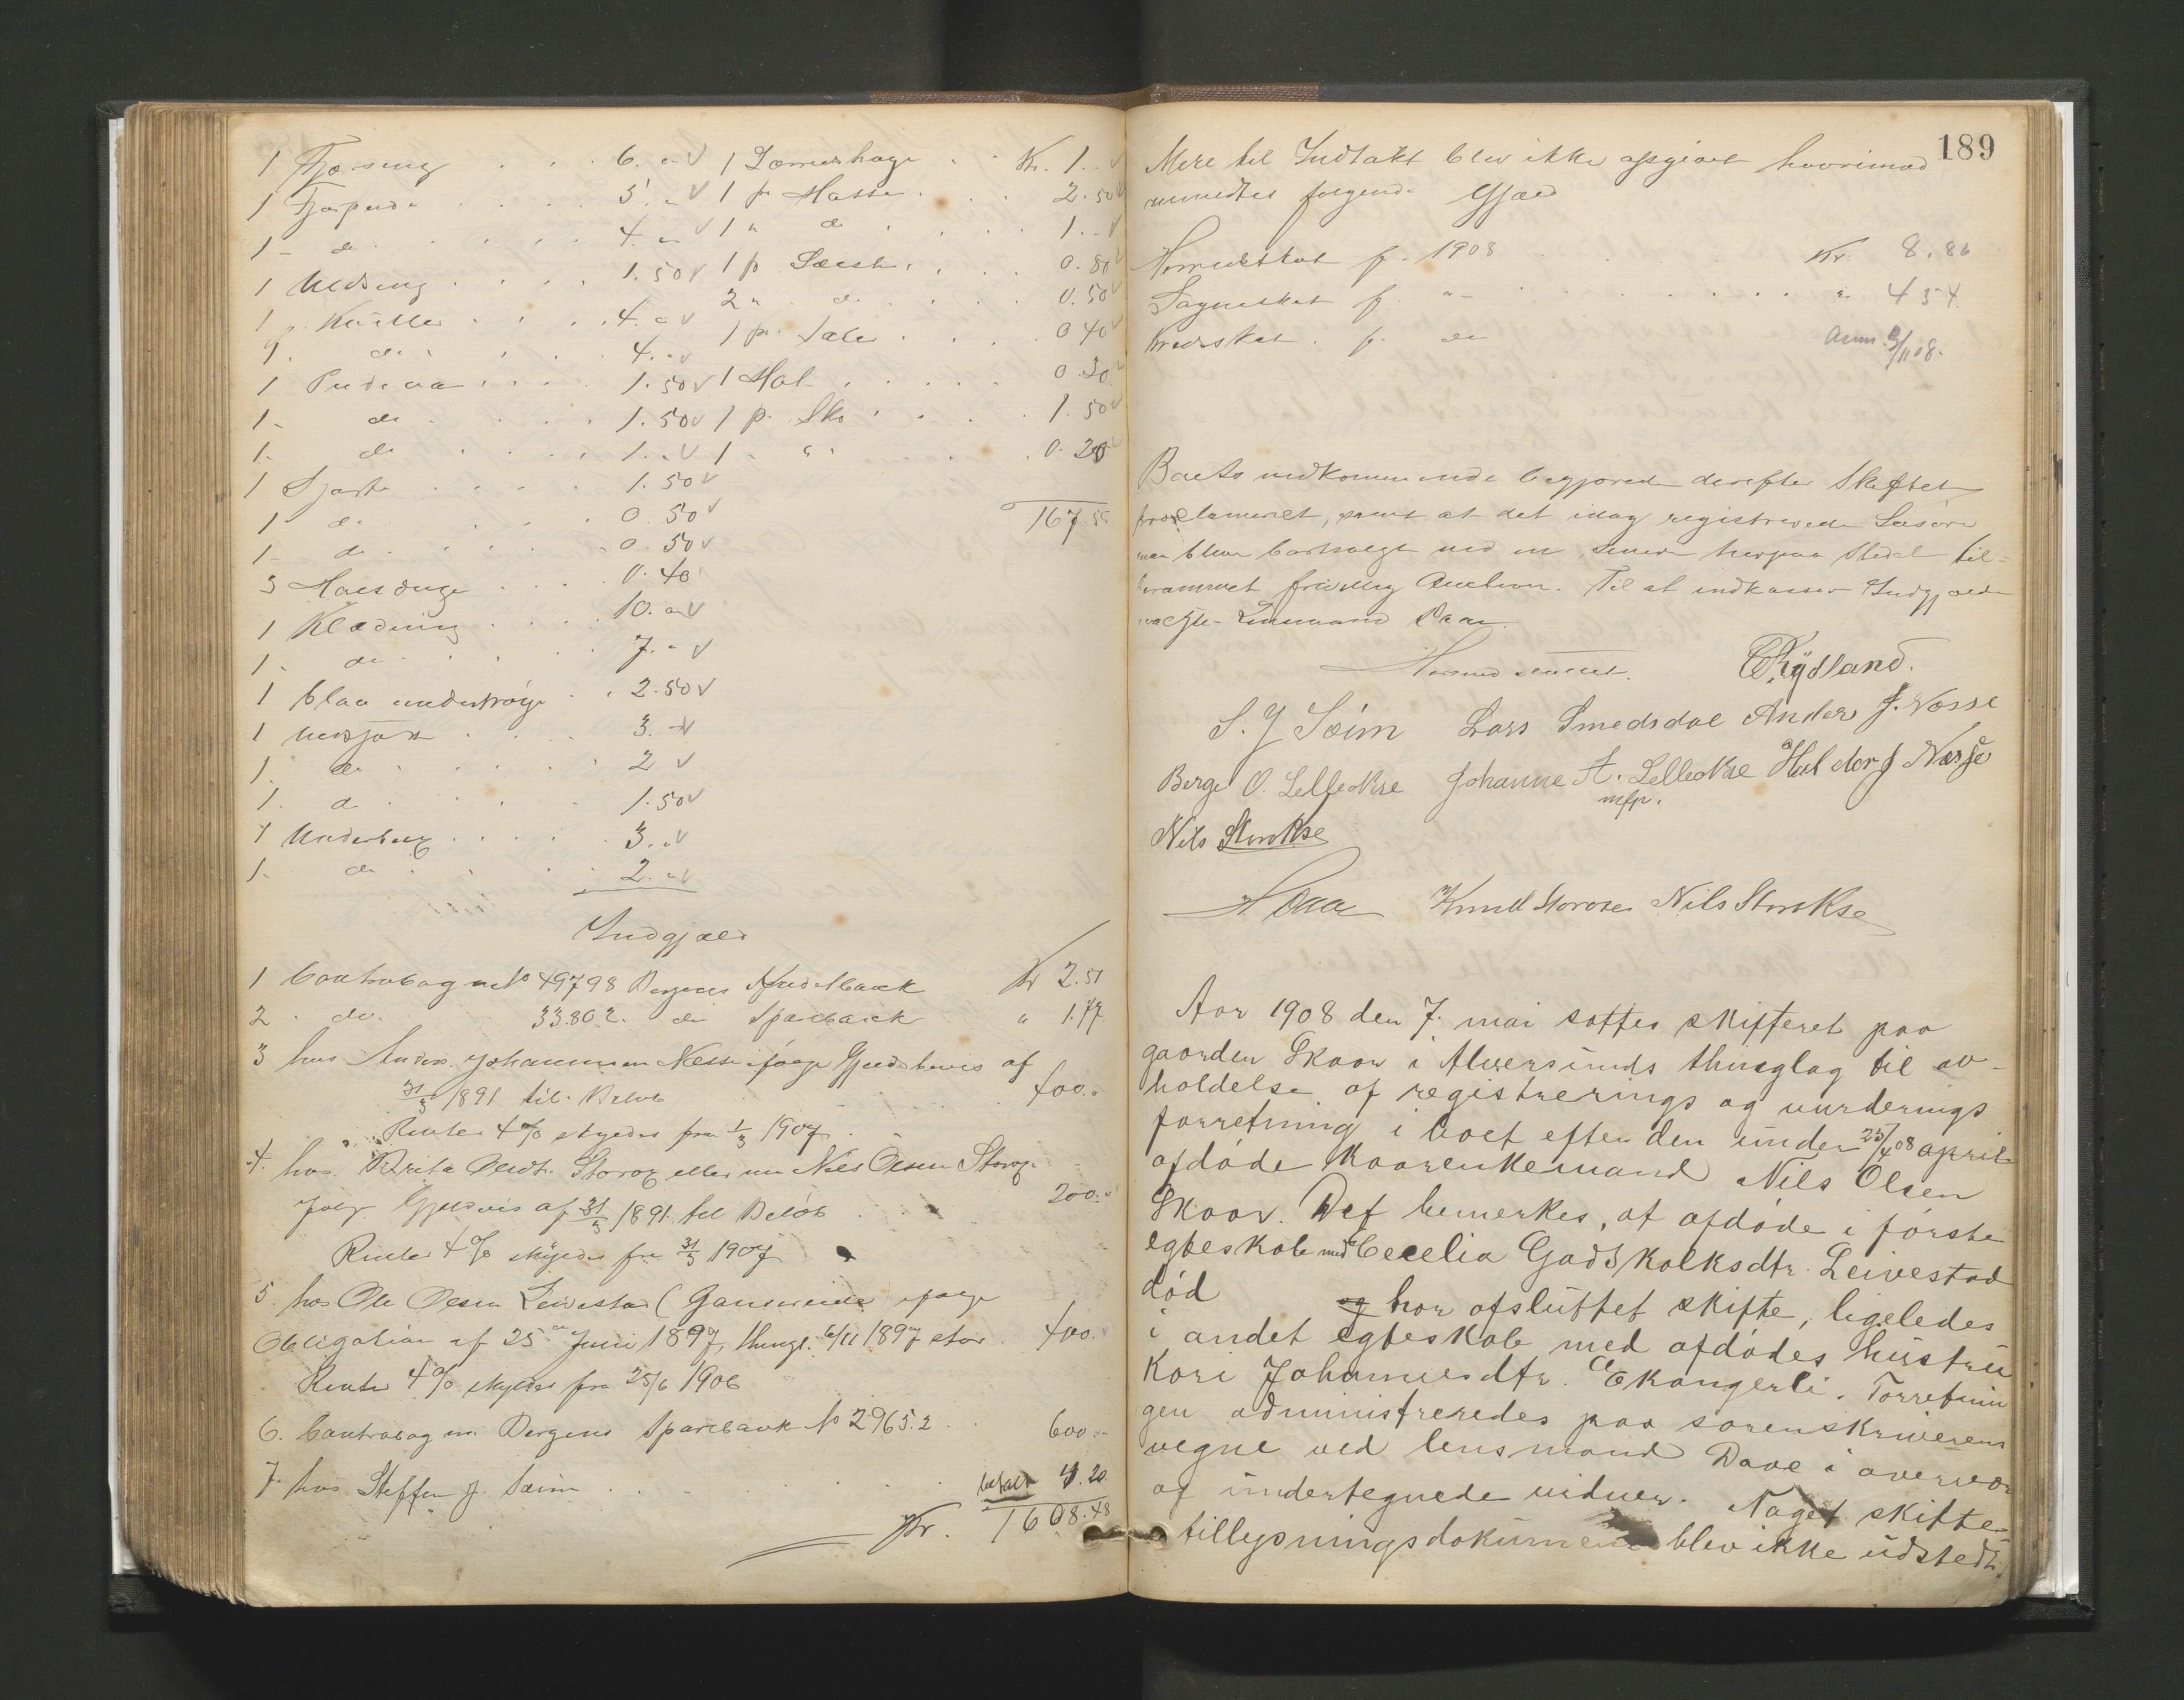 1 Fjærseng . . . 6. „
1 Fjærpude . . . 5. „
1 - do . . . 4. „
1 Uldseng . . . 1.50
1 p. . . . 4. „
1 . do . . . 4. „
1 Pudevar . . . 1.50
1 - do . . . 1.50
1 - do . . . 1. „
1 Skjørte . . . 1.50
1 - do . . . 0.50
1 - do . . . 0.50
3 Halsduge . . . 0.40
1 Klædning . . . 10. „
1 - do . . . 7. „
1 blaa undertrøje . . 2.50
1 . . . 3. „
1 . do . . . 2
1 . do . . . 1.50
1 Underbux . . . 3. „
1 . do . . . 2. „
1 . . Kr. 1. „
1 p. . . . 2.50
1 „ do . . . 1. „
1 p. . . . 0.80
2 „ do . . . 0.50
1 p. . . . 0.40
1 Hat . . . 0.30
1 p. Sko . . . 1.50
1 - „ . . . 0.20
167.55
Indgjæld
1 Contrabog No 49798 Bergens Kreditbank Kr 2.51
2 - do. 33.802. do Sparebank „ 1.77
3 hos Anders Johannesen Nesse ifølge Gjeldsbevis af
31/3 1891 til Beløb . . . 400. „
Renter 4 % skyldes fra 1/3 1907
4. hos Brita Olsdt. Storox eller nu Nils Olsen Storox
følge Gjeldsbevis af 31/3 1891 til Beløb . . 200. „
Renter 4 % skyldes fra 31/3 1907
5. hos Ole Olsen Leivestad ( ifølge
Obligation af 25de Juni 1897, thingl. 6/11 1897 stor . 400. „
Renter 4 % skyldes fra 25/6 1906
6. Contrabog m. Bergens Sparebank No 2965.2 . . 600. „
7. hos Steffen J. Sæim . . . betalt 4.20
Kr. 1608.48
189
Mere til Indtækt blev ikke opgivet hvorimod
anmeldtes følgende Gjæld
Herredskat f. 1908 . . . Kr. 8.86
Sogneskat f. „ . . . „ 4 54
Kredsskat . f. do Anm. 9/11 08.
Boets vedkommende begjærede derefter Skiftet
proclameret, samt at det idag registrerede Løsøre
maa blive bortsolgt ved en senere herpaa Stedet til-
berammet frivillig Auction. Til at indkassere Indgjælden
valgtes Lensmand Daae.
Hermed sluttet. Rydland.
S. J Sæim Lars Smedsdal Anders J. Nesse
Berge O. Lelleokse Johanne A. Lelleokse Haldor J Næsse
mfp.
Nils Storokse
H Daae Knud Storoxe Nils Storokse
Aar 1908 den 7. mai sattes skifteret paa
gaarden Skaar i Alversunds thinglag til av-
holdelse af registrerings og vurderings
forretning i boet efter den under 25/4 08 april
afdøde kaarenkemand Nils Olsen
Skaar. Det bemerkes, at afdøde i første
egteskab med Cecelia Godskalksdtr. Leivestad
død og har afsluttet skifte, ligeledes
i andet egteskab med afdødes hustru
Kari Johannesdtr. Ekangerli. Forretnin
gen administreredes paa sorenskriverens
vegne ved lensmand Daae i overvær
af undertegnede vidner. Noget skifte-
tillysningsdokument blev ikke udstedt.